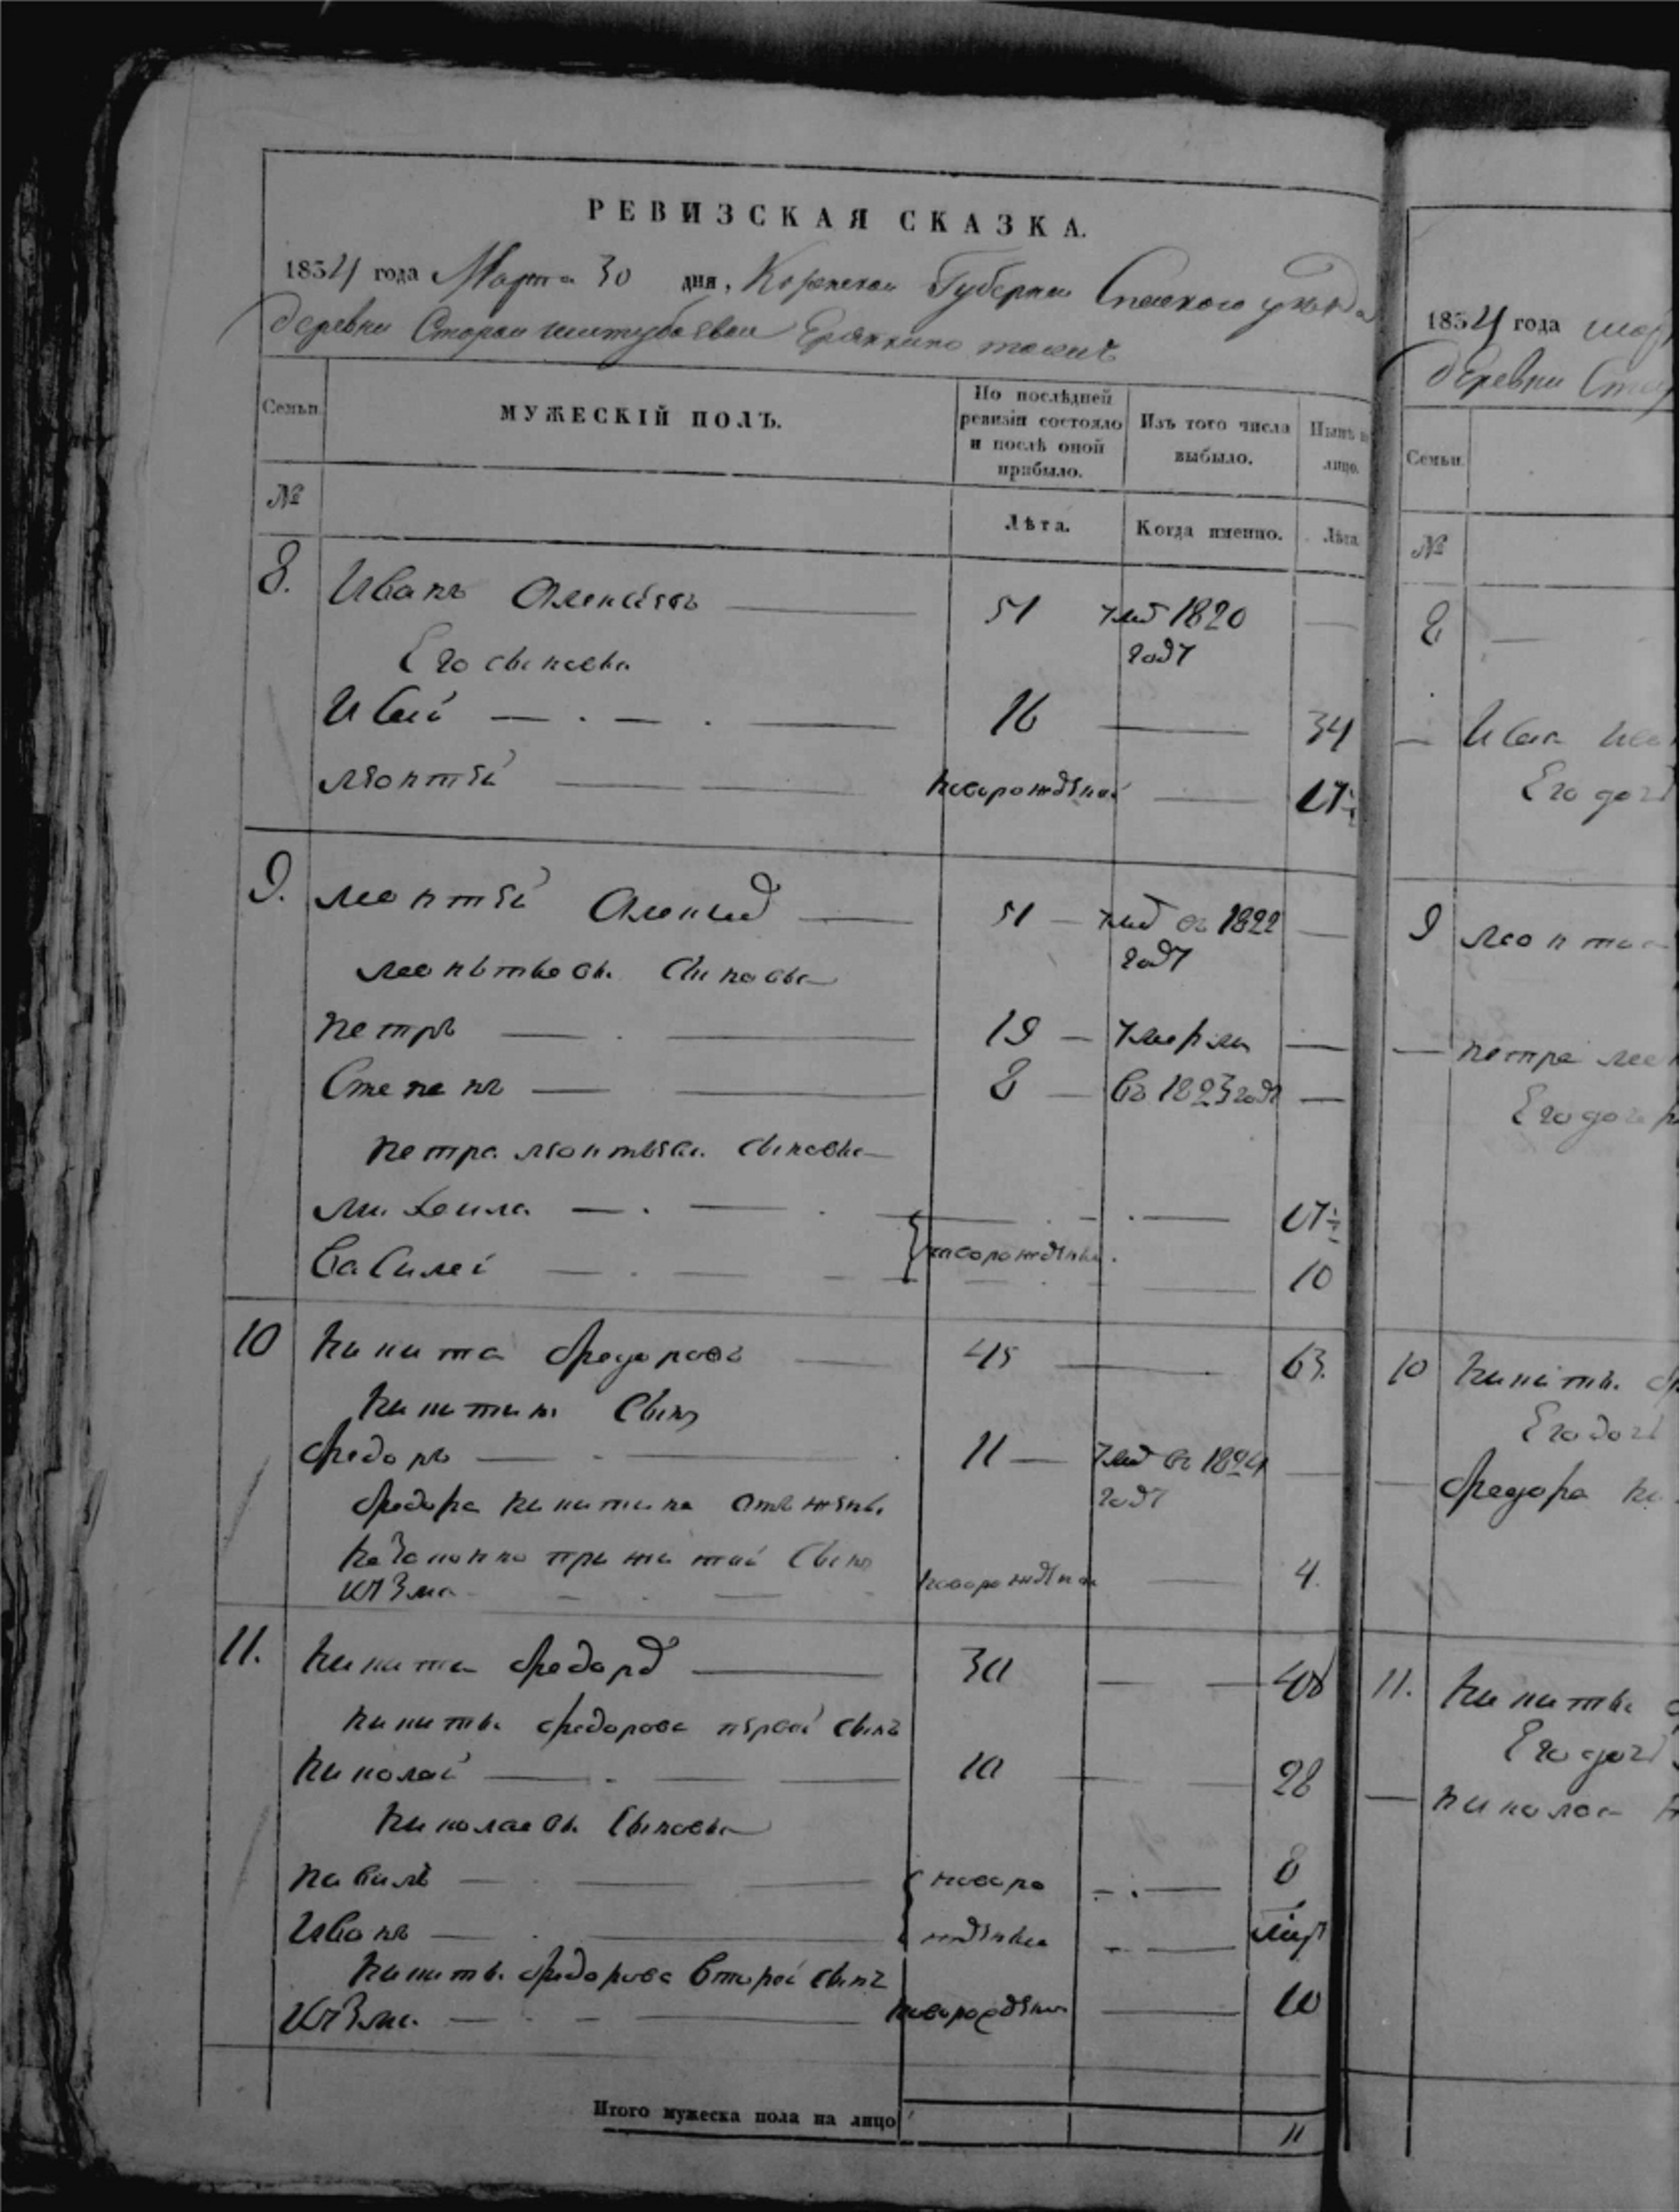 РЕВИЗСКАЯ СКАЗКА.
1834 года Марта 30 дня, Казанской Губернии Спаскаго уезда
деревни Старой Ерянкино тожъ
Семьи.
МУЖЕСКІЙ ПОЛЪ.
По послѣдней ревизіи состояло и послѣ оной прибыло.
Изъ того числа выбыло.
Нынѣ на лицо.
№
Лѣта.
Когда именно.
Лѣта
8. Иванъ Алексеевъ 51 умъ 1820
Его сыновья году
Ивай 16 34
Леонтей новорожденой 17½
9. Леонтей 51 умъ въ 1822
Леонтьевы сыновья году
Петръ 19 умерли
Степанъ 8 въ 1823 году
Петра Леонтьева сыновья
Михаила 17½
новорожденны
Василей 10
10 Никита Федоровъ 45 63.
Никитинъ сынъ
Федоръ 11 умъ въ 1824
Федора Никитина отъ жены году
незаконно прижитой сынъ
Кузма новорожденой 4.
11. Никита Федоръ 30 48
Никиты Федорова первой сынъ
Николай 10 28
Николаевы сыновья
Павилъ новоро 8
Иванъ жденны
Никиты Федорова второй сынъ
Кузма новорожденъ 10
Итого мужеска пола на лицо 11
1834 года мар
деревни Ста
Семьи.
№
8
Ивая
Его доч
9 Леонтья
Петра Леон
Его дочер
10 Никиты
Его доч
Федора Ни
11. Никиты
Его доч
Николая